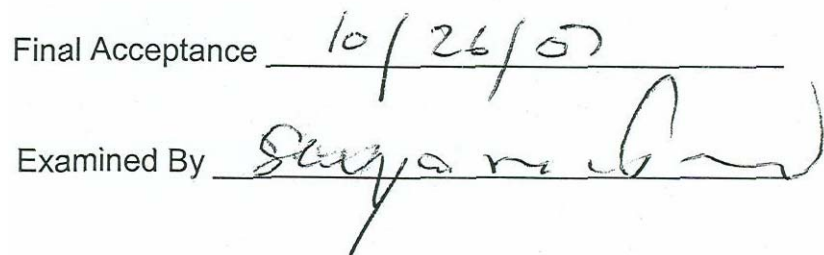 Final Acceptance 10/26/07
Examined By